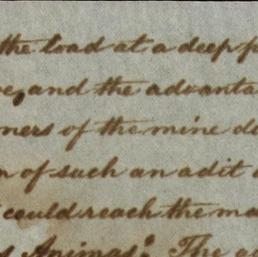 the load at a deep p
e, and the advanta
ners of the mine d
n of such an adit
could reach the ma
s Animas. The